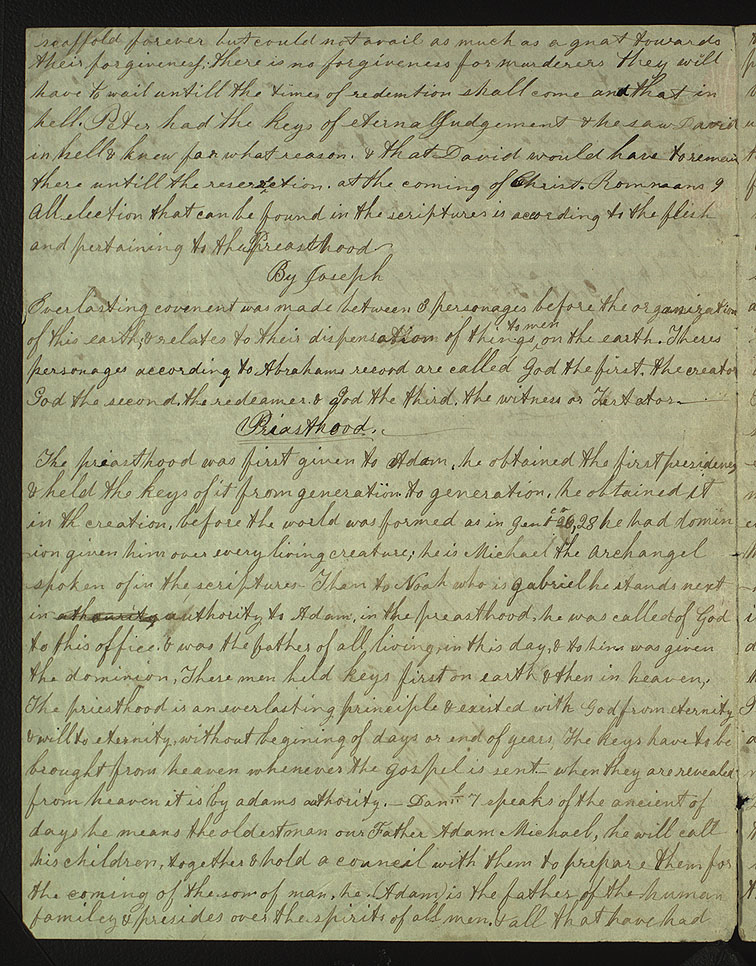 scaffold forever but could not avail as much as a gnat towards
their forgiveness; there is no forgiveness for murderers they will
have to wait untill the times of redemtion shall come and that in
hell. Peter had the keys of eternal Judgement & he saw David
in hell & knew for what reason. & that David would have to remain
there untill the reserection. at the coming of Christ. Romnaans 9
All election that can be found in the scriptures is according to the flesh
and pertaining to the Preasthood
By Joseph
Everlasting covenent was made between 3 personages before the organization
of this earth, & relates to their dispensation of things to men on the earth. Theres
personages according to Abrahams record are called God the first. the creator
God the second. the redeamer. & God the third. the witness or Testator
Priasthood.
The preasthood was first given to Adam. he obtained the first presidency
& held the keys of it from generation to generation. he obtained it
in th creation, before the world was formed as in Gen 1 c 26, 28 he had domin
ion given him over every living creature; he is Michael the archangel
spoken of in the scriptures Then to Noah who is gabriel he stands next
in athourity authority to Adam, in the preasthood. he was called of God
to this office & was the father of all, living, in this day, & to him was given
the dominion, These men held keys first on earth & then in heaven,
The priesthood is an everlasting principle & existed with God from eternity
& will to eternity, without begining of days or end of years, The keys have to be
brought from heaven whenever the gospel is sent when they are revealed
from heaven it is by adams authority. — Danl 7 speaks of the ancient of
days he means the oldest man our Father Adam Michael, he will call
his children, together & hold a council with them to prepare them for
the coming of the son of man. he (Adam) is the father of the human
familey & presides over the spirits of all men. & all that have had